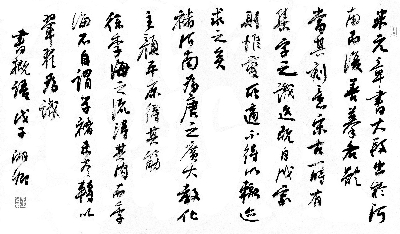 米元章書大段出於河
南而復善摹各體
當其刻意宗古一時有
集字之譏迨既自成家
則惟變所適不得以轍迹
求之矣
褚河南為唐之廣大教化
主顏平原得其筋
徐季海之流得其肉而季
海不自謂學褚未盡轉以
翬翟為譏
書概語 戊子